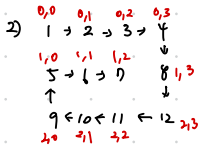 0,0 0,1 0,2 0,3
2) 1 → 2 → 3 → 4
↓
1,0 1,1 1,2
5 → 6 → 7 8 1,3
↑ ↓
9 ← 10 ← 11 ← 12 2,3
2,0 2,1 2,2